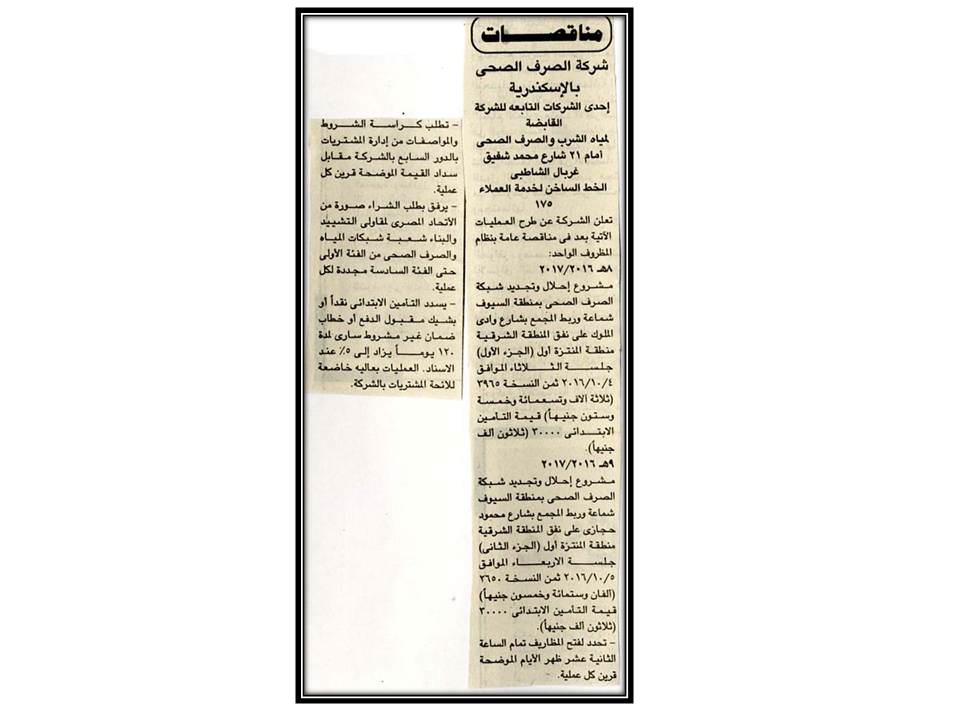 مناقصات
شركة الصرف الصحى
بالإسكندرية
إحدى الشركات التابعه للشركة
القابضة
لمياه الشرب والصرف الصحى
أمام ٢١ شارع محمد شفيق
غربال الشاطبى
الخط الساخن لخدمة العملاء
١٧٥
تعلن الشركة عن طرح العمليات
الآتية بعد فى مناقصة عامة بنظام
المظروف الواحد:
٨هـ ٢٠١٧/٢٠١٦
مشروع إحلال وتجديد شبكة
الصرف الصحى بمنطقة السيوف
شماعة وربط المجمع بشارع وادى
الملوك على نفق المنطقة الشرقية
منطقة المنتزة أول (الجزء الأول)
جلسة الثلاثاء الموافق
٢٠١٦/١٠/٤ ثمن النسخة ٣٩٦٥
(ثلاثة آلاف وتسعمائة وخمسة
وستون جنيهاً) قيمة التأمين
الابتدائى ٣٠٠٠٠ (ثلاثون ألف
جنيهاً).
٩هـ ٢٠١٧/٢٠١٦
مشروع إحلال وتجديد شبكة
الصرف الصحى بمنطقة السيوف
شماعة وربط المجمع بشارع محمود
حجازى على نفق المنطقة الشرقية
منطقة المنتزة أول (الجزء الثانى)
جلسة الاربعاء الموافق
٢٠١٦/١٠/٥ ثمن النسخة ٢٦٥٠
(ألفان وستمائة وخمسون جنيهاً)
قيمة التأمين الابتدائى ٣٠٠٠٠
(ثلاثون ألف جنيهاً).
- تحدد لفتح المظاريف تمام الساعة
الثانية عشر ظهر الأيام الموضحة
قرين كل عملية.
- تطلب كراسة الشروط
والمواصفات من إدارة المشتريات
بالدور السابع بالشركة مقابل
سداد القيمة الموضحة قرين كل
عملية.
- يرفق بطلب الشراء صورة من
الأتحاد المصرى لمقاولى التشييد
والبناء شعبة شبكات المياه
والصرف الصحى من الفئة الأولى
حتى الفئة السادسة مجددة لكل
عملية.
- يسدد التأمين الابتدائى نقداً أو
بشيك مقبول الدفع أو خطاب
ضمان غير مشروط سارى لمدة
١٢٠ يوماً يزاد إلى ٥٪ عند
الاسناد. العمليات بعاليه خاضعة
للائحة المشتريات بالشركة.